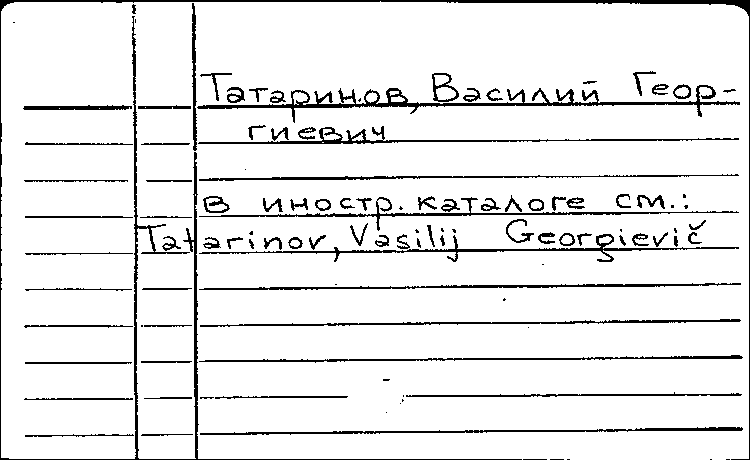 Татаринов, Василий Геор-
гиевич
в иностр. каталоге см.:
Tatarinov, Vasilij Georgievič